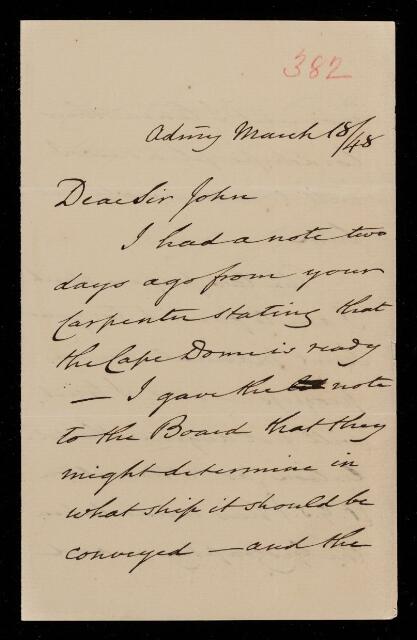 382
Admy March 18/48
Dear Sir John
I had a note two
days ago from your
Carpenter stating that
the Cape Dome is ready
— I gave the note
to the Board that they
might determine in
what ship it should be
conveyed — and the